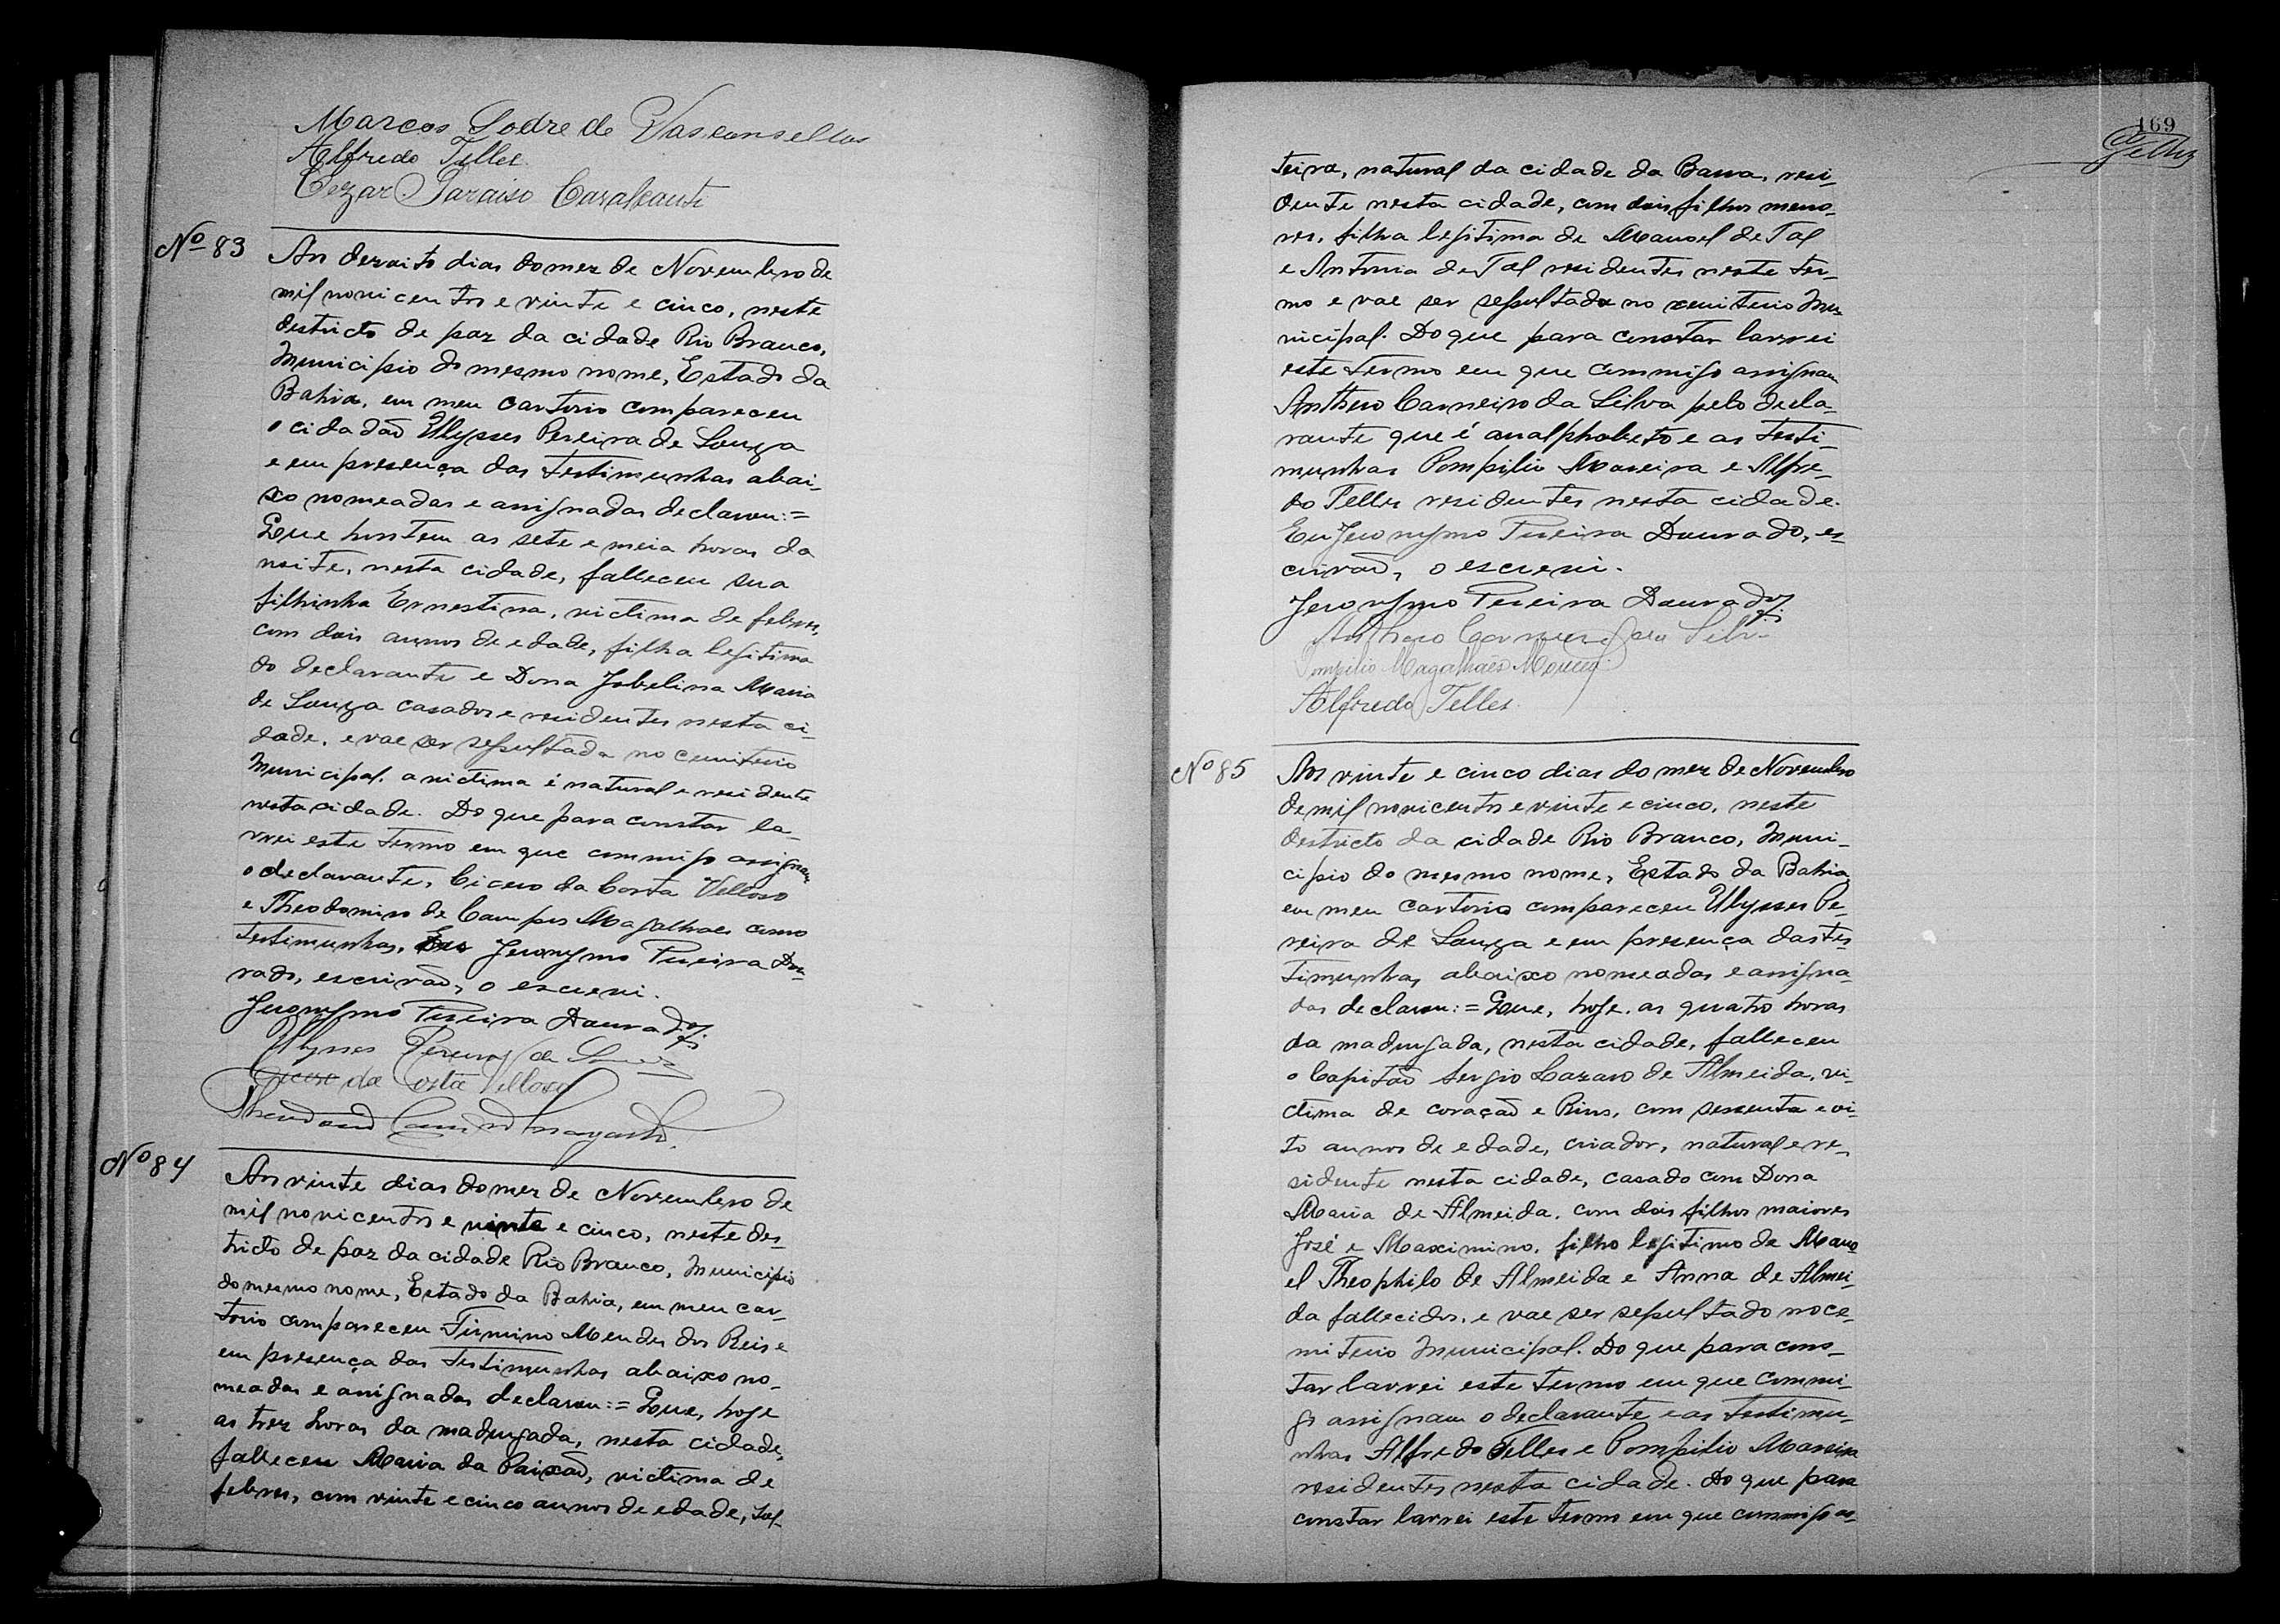 Marcos Sodre de Vasconsellos
Alfredo Telles.
Cezar Paraiso Cavalcante
Nº 83
Aos dezoito dias do mez de Novembro de
mil novicentos e vinte e cinco, neste
destricto de paz da cidade Rio Branco,
Municipio do mesmo nome, Estado da
Bahia, em meu cartorio compareceu
o cidadão Ulysses Pereira de Souza
e em presença das testimunhas abai-
xo nomeadas e assignadas declarou:=
Que hontem as sete e meia horas da
noite, nesta cidade, falleceu sua
filhinha Ernestina, victima de febres,
com dois annos de edade, filha legitima
do declarante e Dona Jobelina Maria
de Souza casados e residentes nesta ci-
dade, e vae ser sepultada no cemiterio
Municipal. a victima é natural e residente
nesta cidade. Do que para constar la-
vrei este termo em que commigo assignam
o declarante, Cicero da Costa Velloso
e Theodomiro de Campos Magalhaes como
testimunhas. Eu Jeronymo Pereira Dou-
rado, escrivão, o escrevi.
Jeronymo Pereira Dourado
Ulysses Pereira de Souza
Cicero da Costa Velloso
Nº 84
Aos vinte dias do mez de Novembro de
mil novicentos e vinte e cinco, neste des-
tricto de paz da cidade Rio Branco, Municipio
do mesmo nome, Estado da Bahia, em meu car-
torio compareceu Firmino Mendes dos Reis e
em presença das testimunhas abaixo no-
meadas e assignadas declarou:= Que, hoje
as trez horas da madurgada, nesta cidade,
falleceu Maria da Paixão, victima de
febres, com vinte e cinco annos de edade, sol-
169
Telles
teira, natural da cidade da Barra, resi-
dente nesta cidade, com dois filhos meno-
res, filha legitima de Manoel de Tal
e Antonia de Tal residentes neste ter-
mo e vae ser sepultada no cemiterio Mu-
nicipal. Do que para constar larvei
este termo em que commigo assignam
Anthero Carneiro da Silva pelo decla-
rante que é analphabeto e as testi-
munhas Pompilio Moreira e Alfre-
do Telles residentes nesta cidade.
Eu Jeronymo Pereira Dourado, es-
crivão, o escrevi.
Jeronymo Pereira Dourado
Anthero Carneiro da Silva
Pompilio Magalhães Moreira
Alfredo Telles.
Nº 85
Aos vinte e cinco dias do mez de Novembro
de mil novicentos e vinte e cinco, neste
destricto da cidade Rio Branco, Muni-
cipio do mesmo nome, Estado da Bahia,
em meu cartorio compareceu Ulysses Pe-
reira de Souza e em presença das tes-
timunhas abaixo nomeadas e assigna-
das declarou:= Que, hoje, as quatro horas
da madurgada, nesta cidade, falleceu
o Capitão Sergio Lazaro de Almeida, vi-
ctima de coração e Rins, com sessenta e oi-
to annos de edade, criador, natural e re-
sidente nesta cidade, casado com Dona
Maria de Almeida, com dois filhos maiores
José e Maximino, filho legitimo de Mano
el Theophilo de Almeida e Anna de Almei-
da fallecidos, e vae ser sepultado no ce-
miterio Municipal. Do que para cons-
tar larvei este termo em que commi-
go assignam o declarante e as testimu-
nhas Alfredo Telles e Pompilio Moreira
residentes nesta cidade. Do que para
constar larvei este termo em que commigo as-